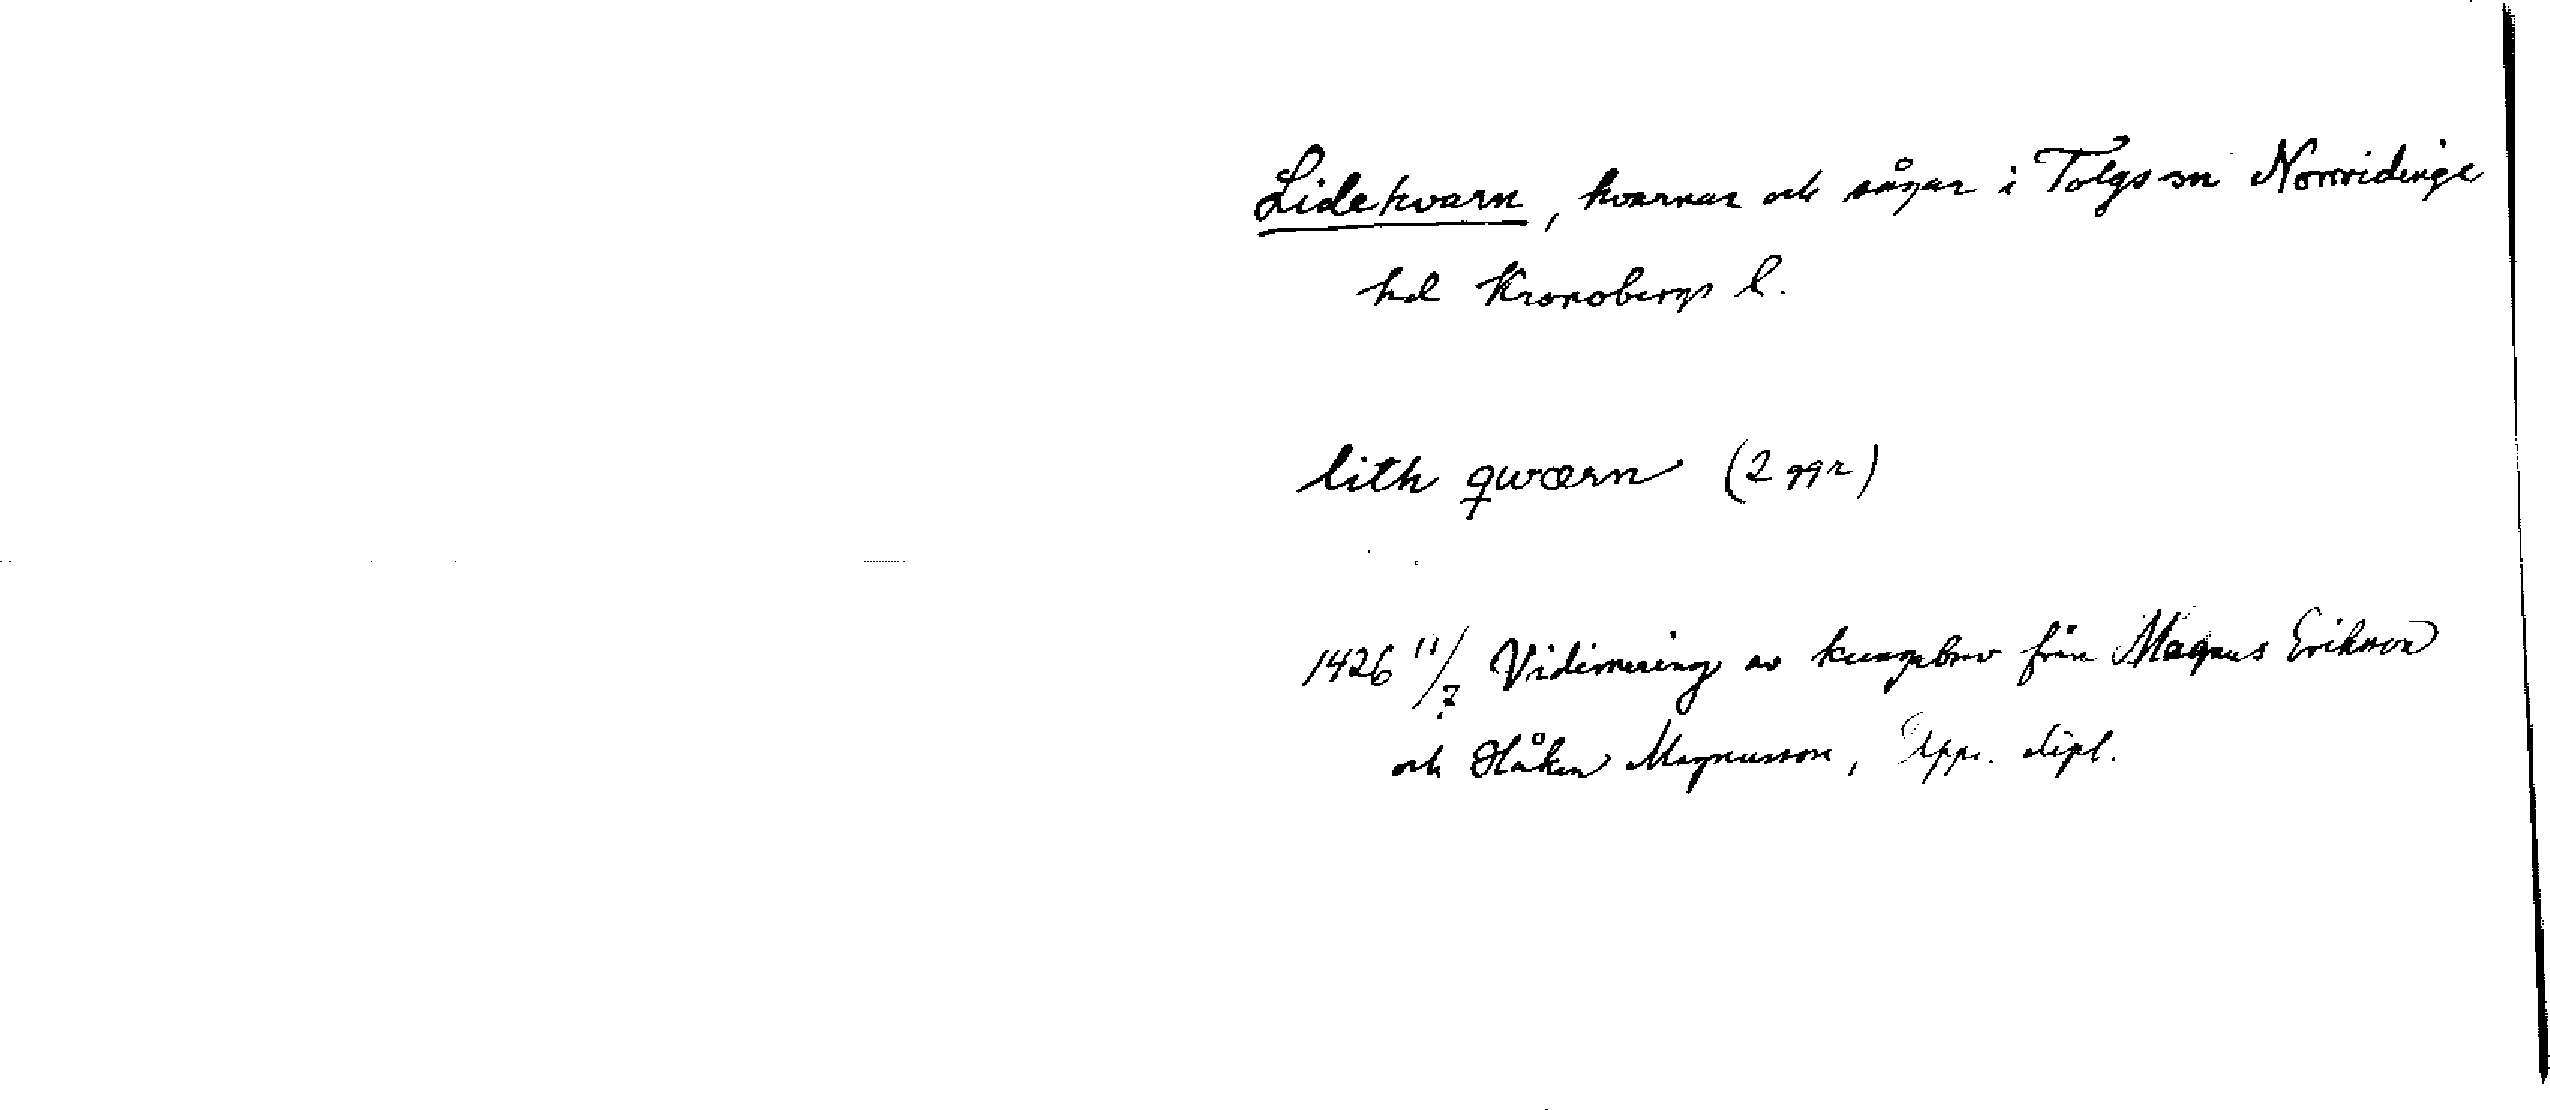 Lidekvarn, kvarnar och sågar i Tolgs sn Norrvidinge
hd Kronobergs l.
lith qwærn (2 ggr)
1426 11/7 Vidimering av kungabrev från Magnus Erikson
och Håkan Magnusson, Upps. dipl.